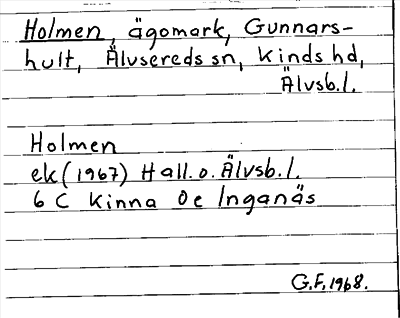 Holmen, ägomark, Gunnars-
hult, Älvsereds sn, Kinds hd,
Älvsb.l.
Holmen
ek (1967) Hall. o. Älvsb.l.
6 C Kinna 0e Inganäs
G.F. 1968.